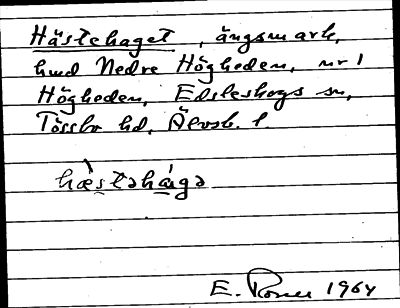 Hästehaget, ängsmark,
hmd Nedre Högheden, nr 1
Högheden, Edsleskogs sn,
Tössbo hd, Älvsb. l.
hæ̀stəháigə
E. 1964